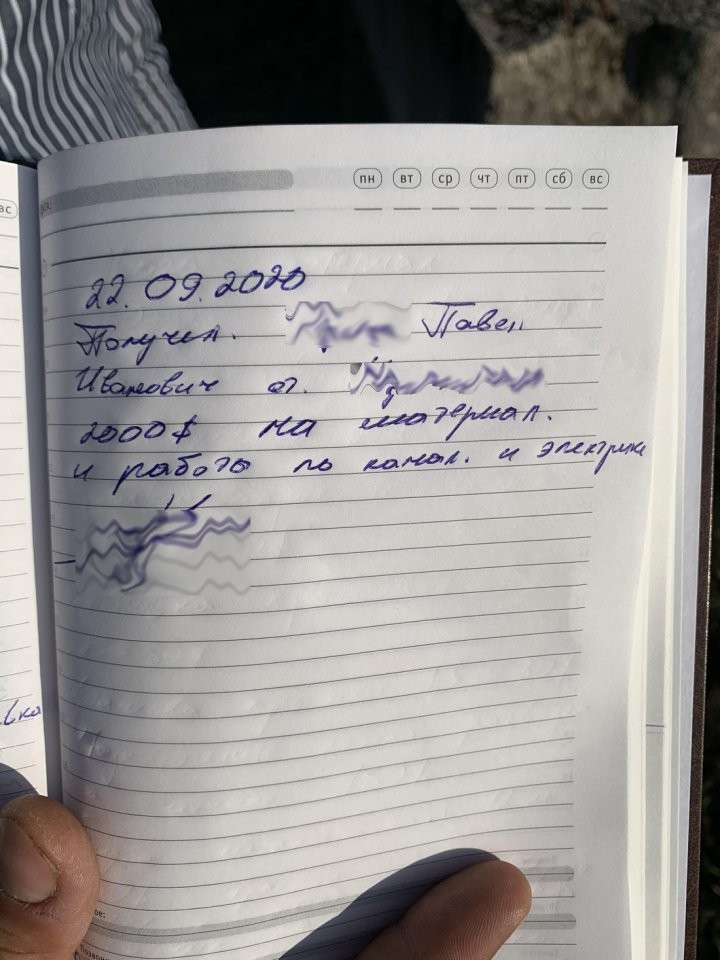 вс
пн вт ср чт пт сб вс
22.09.2020
Получил. Павел
Иванович от.
2000$ на материал.
и работы по канал. и электрике